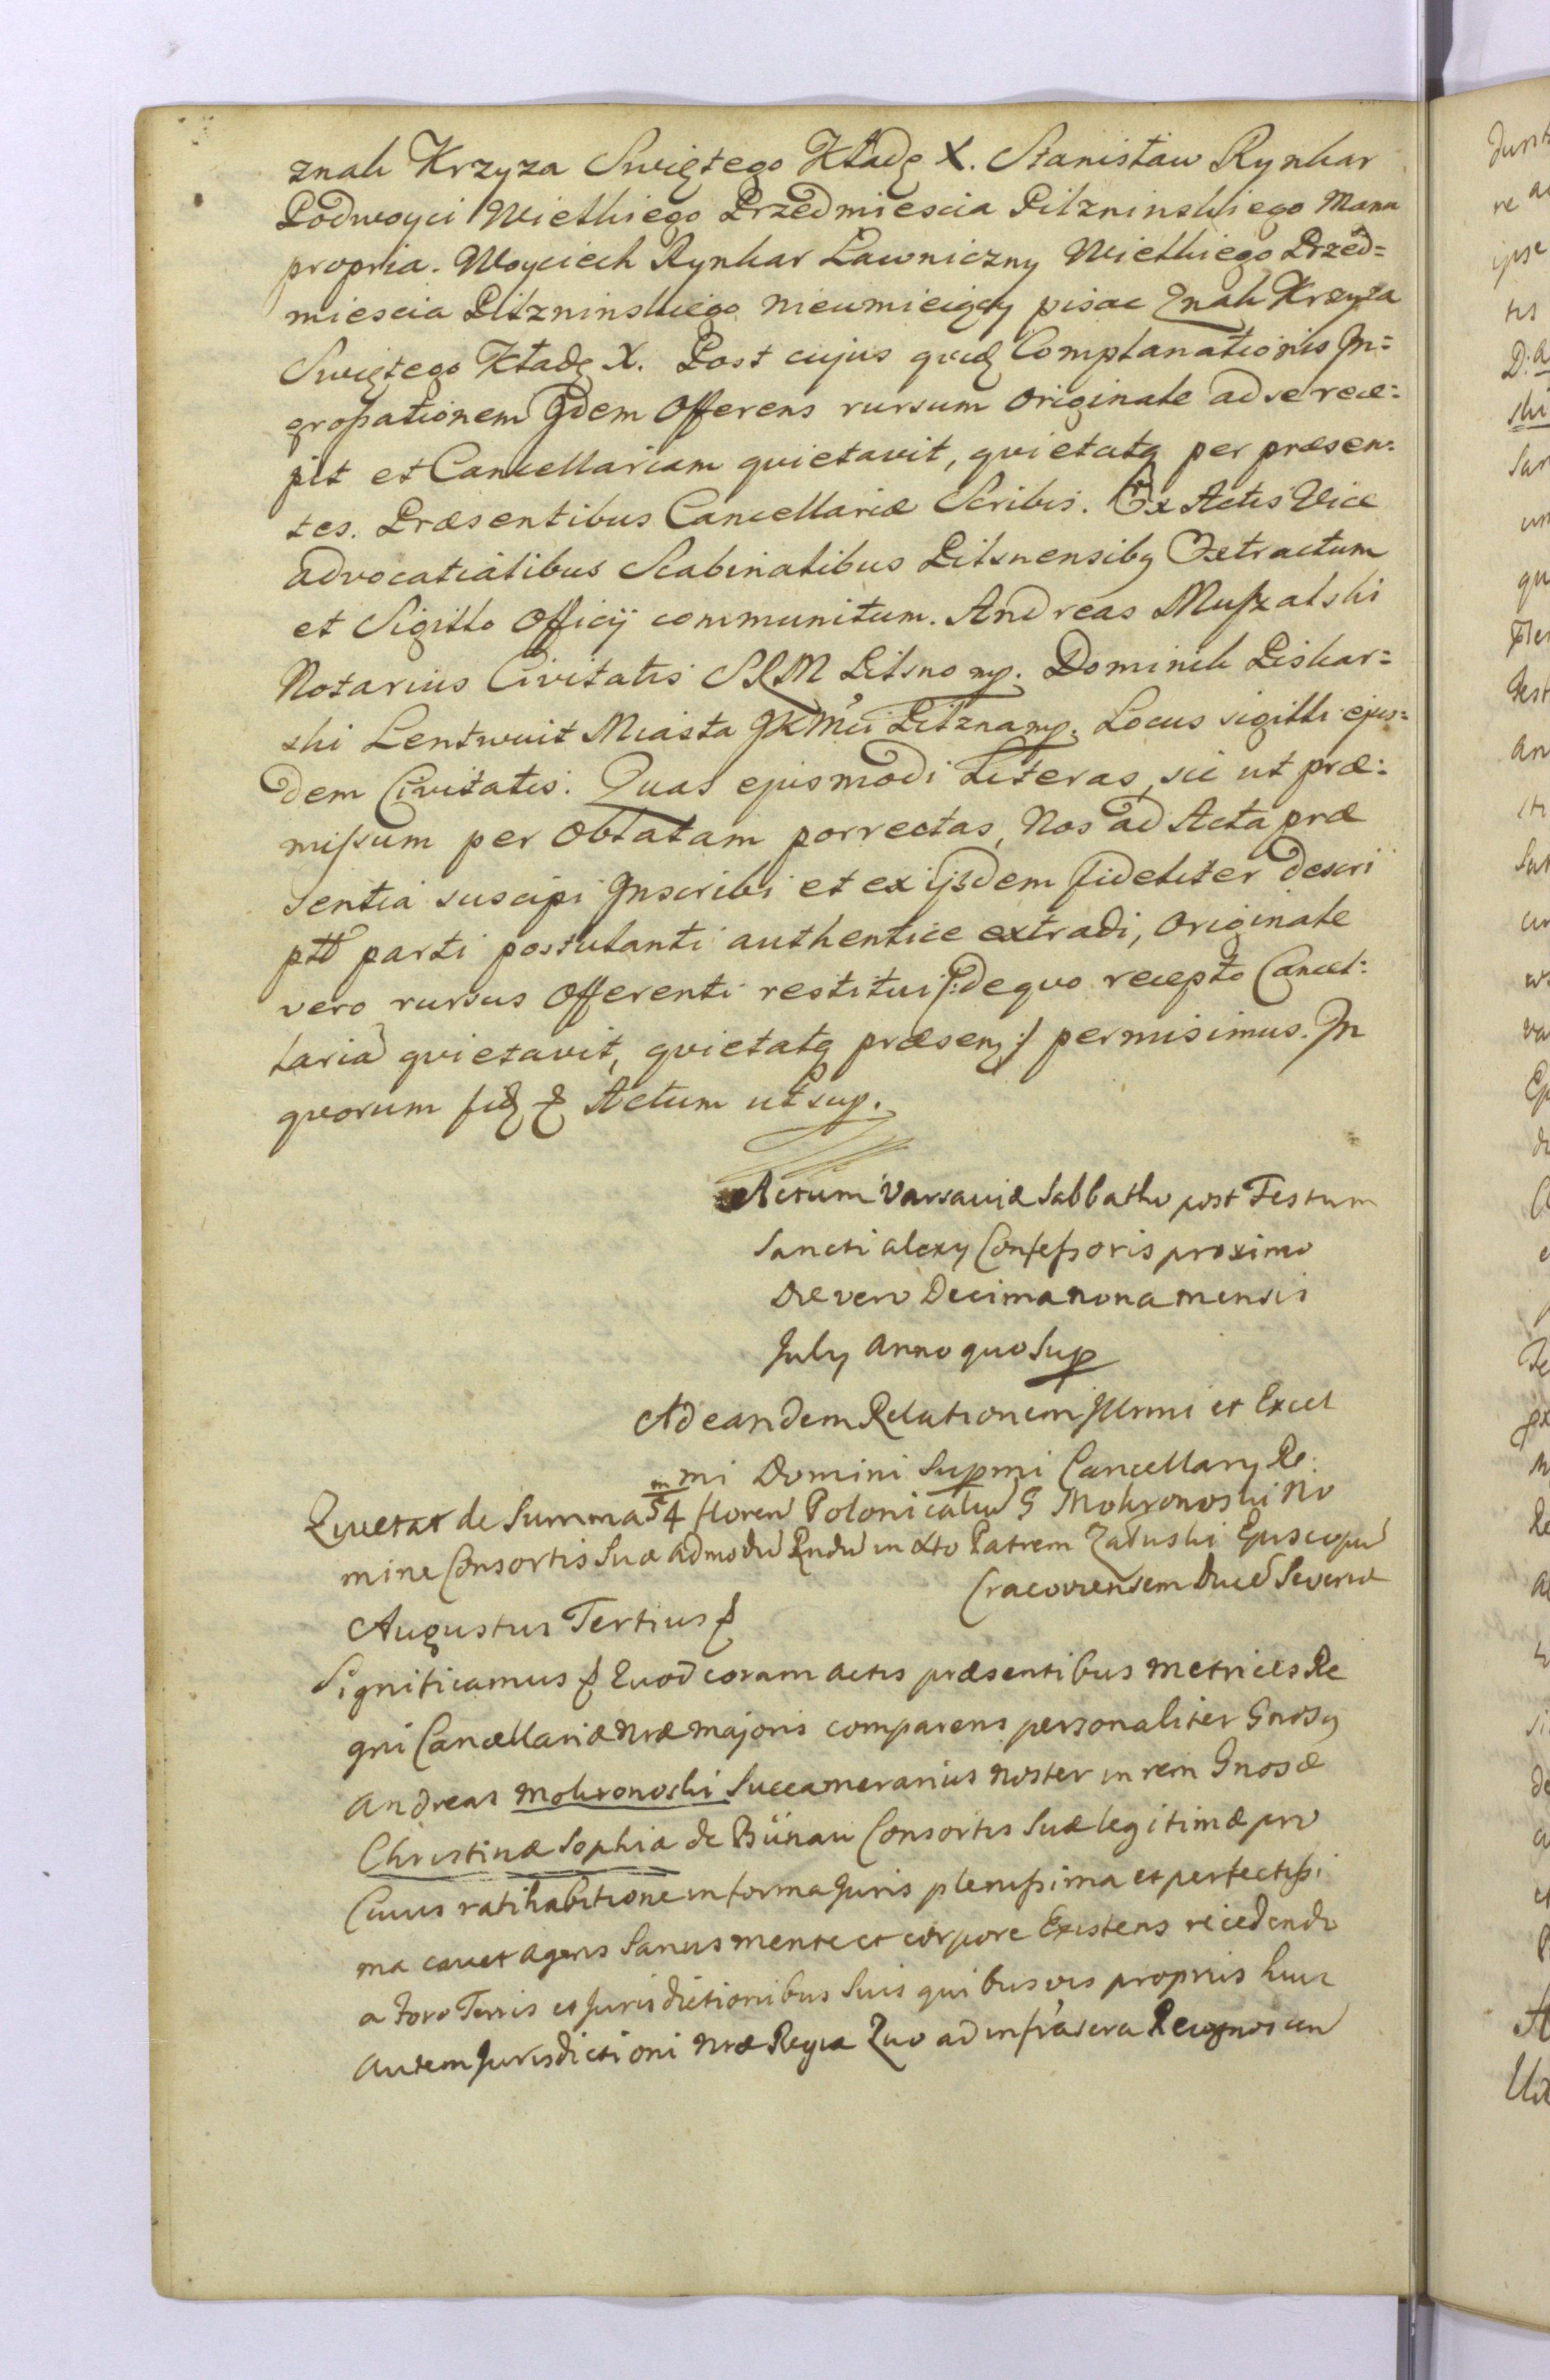 znak Krzyza Swiętego Kładę X. Stanisław Rynkar
Podwoyci Wielkiego Przedmiescia Pilzninskiego Manu
propria. Woyciech Rynkar Ławniczny Wielkiego Przed=
miescia Pilzninskiego nieumieiący pisac Znak Krzyża
Swiętego Kładę X. Post cujus quidẽ Complanationis In=
grossationem Idem Offerens rursum Originale ad se rece=
pit et Cancellariam quietavit, quietatq per præsen=
tes. Præsentibus Cancellariæ Scribis. Ex Actis Vice
advocatialibus Scabinalibus Pilsnensibꝯ Extractum
et Sigillo Officij communitum. Andreas Muszalski
Notarius Civitatis SRM Pilsno mp. Dominik Piskar=
ski Lentwuit Miasta JKMci Pilzna mp. Locus sigilli ejus=
dem Civitatis. Quas ejusmodi Literas, sic ut præ=
missum per Oblatam porrectas, Nos ad Acta præ
sentia suscipi Inscribi et ex ijsdem fideliter descri
ptũ parti postulanti authentice extradi, Originale
vero rursus Offerenti restitui /:de quo recepto Cancel=
lariã quietavit, quietatq præsenꝯ:/ permisimus. In
quorum fidẽ & Actum ut sup.
Actum Varsaviæ Sabbatho post Festum
Sancti Alexy Confessoris proximo
Die vero Decima nona mensis
July Anno quo Sup
Ad eandem Relationem Illrmi et Excel
mi Domini Supmi Cancellary Re:
Quietat de Summa 54 m floren̄ Polonicaliũ G Mokronoski No
mine Consortis Suæ Admodũ Rndũ in Xto Patrem Załuski Episcopũ
Cracoviensem Ducẽ Severiæ
Augustus Tertius &
Significamus & Quod coram Actis præsentibus Metrices Re
gni Cancellariæ Nræ Majoris comparens personaliter Gnosꝯ
Andreas Mokronoski Succamerarius Noster in rem Gnosæ
Christinæ Sophiæ de Bünau Consortis Suæ legitimæ pro
Cuius ratihabitione in forma Juris plenissima et perfectissi
ma cavet agens Sanus mente et corpore Existens recedendo
a foro Terris et Jurisdictionibus Suis quibusvis propriis huic
autem Jurisdictioni Nræ Regiæ Quo ad infrascra Recognoscen